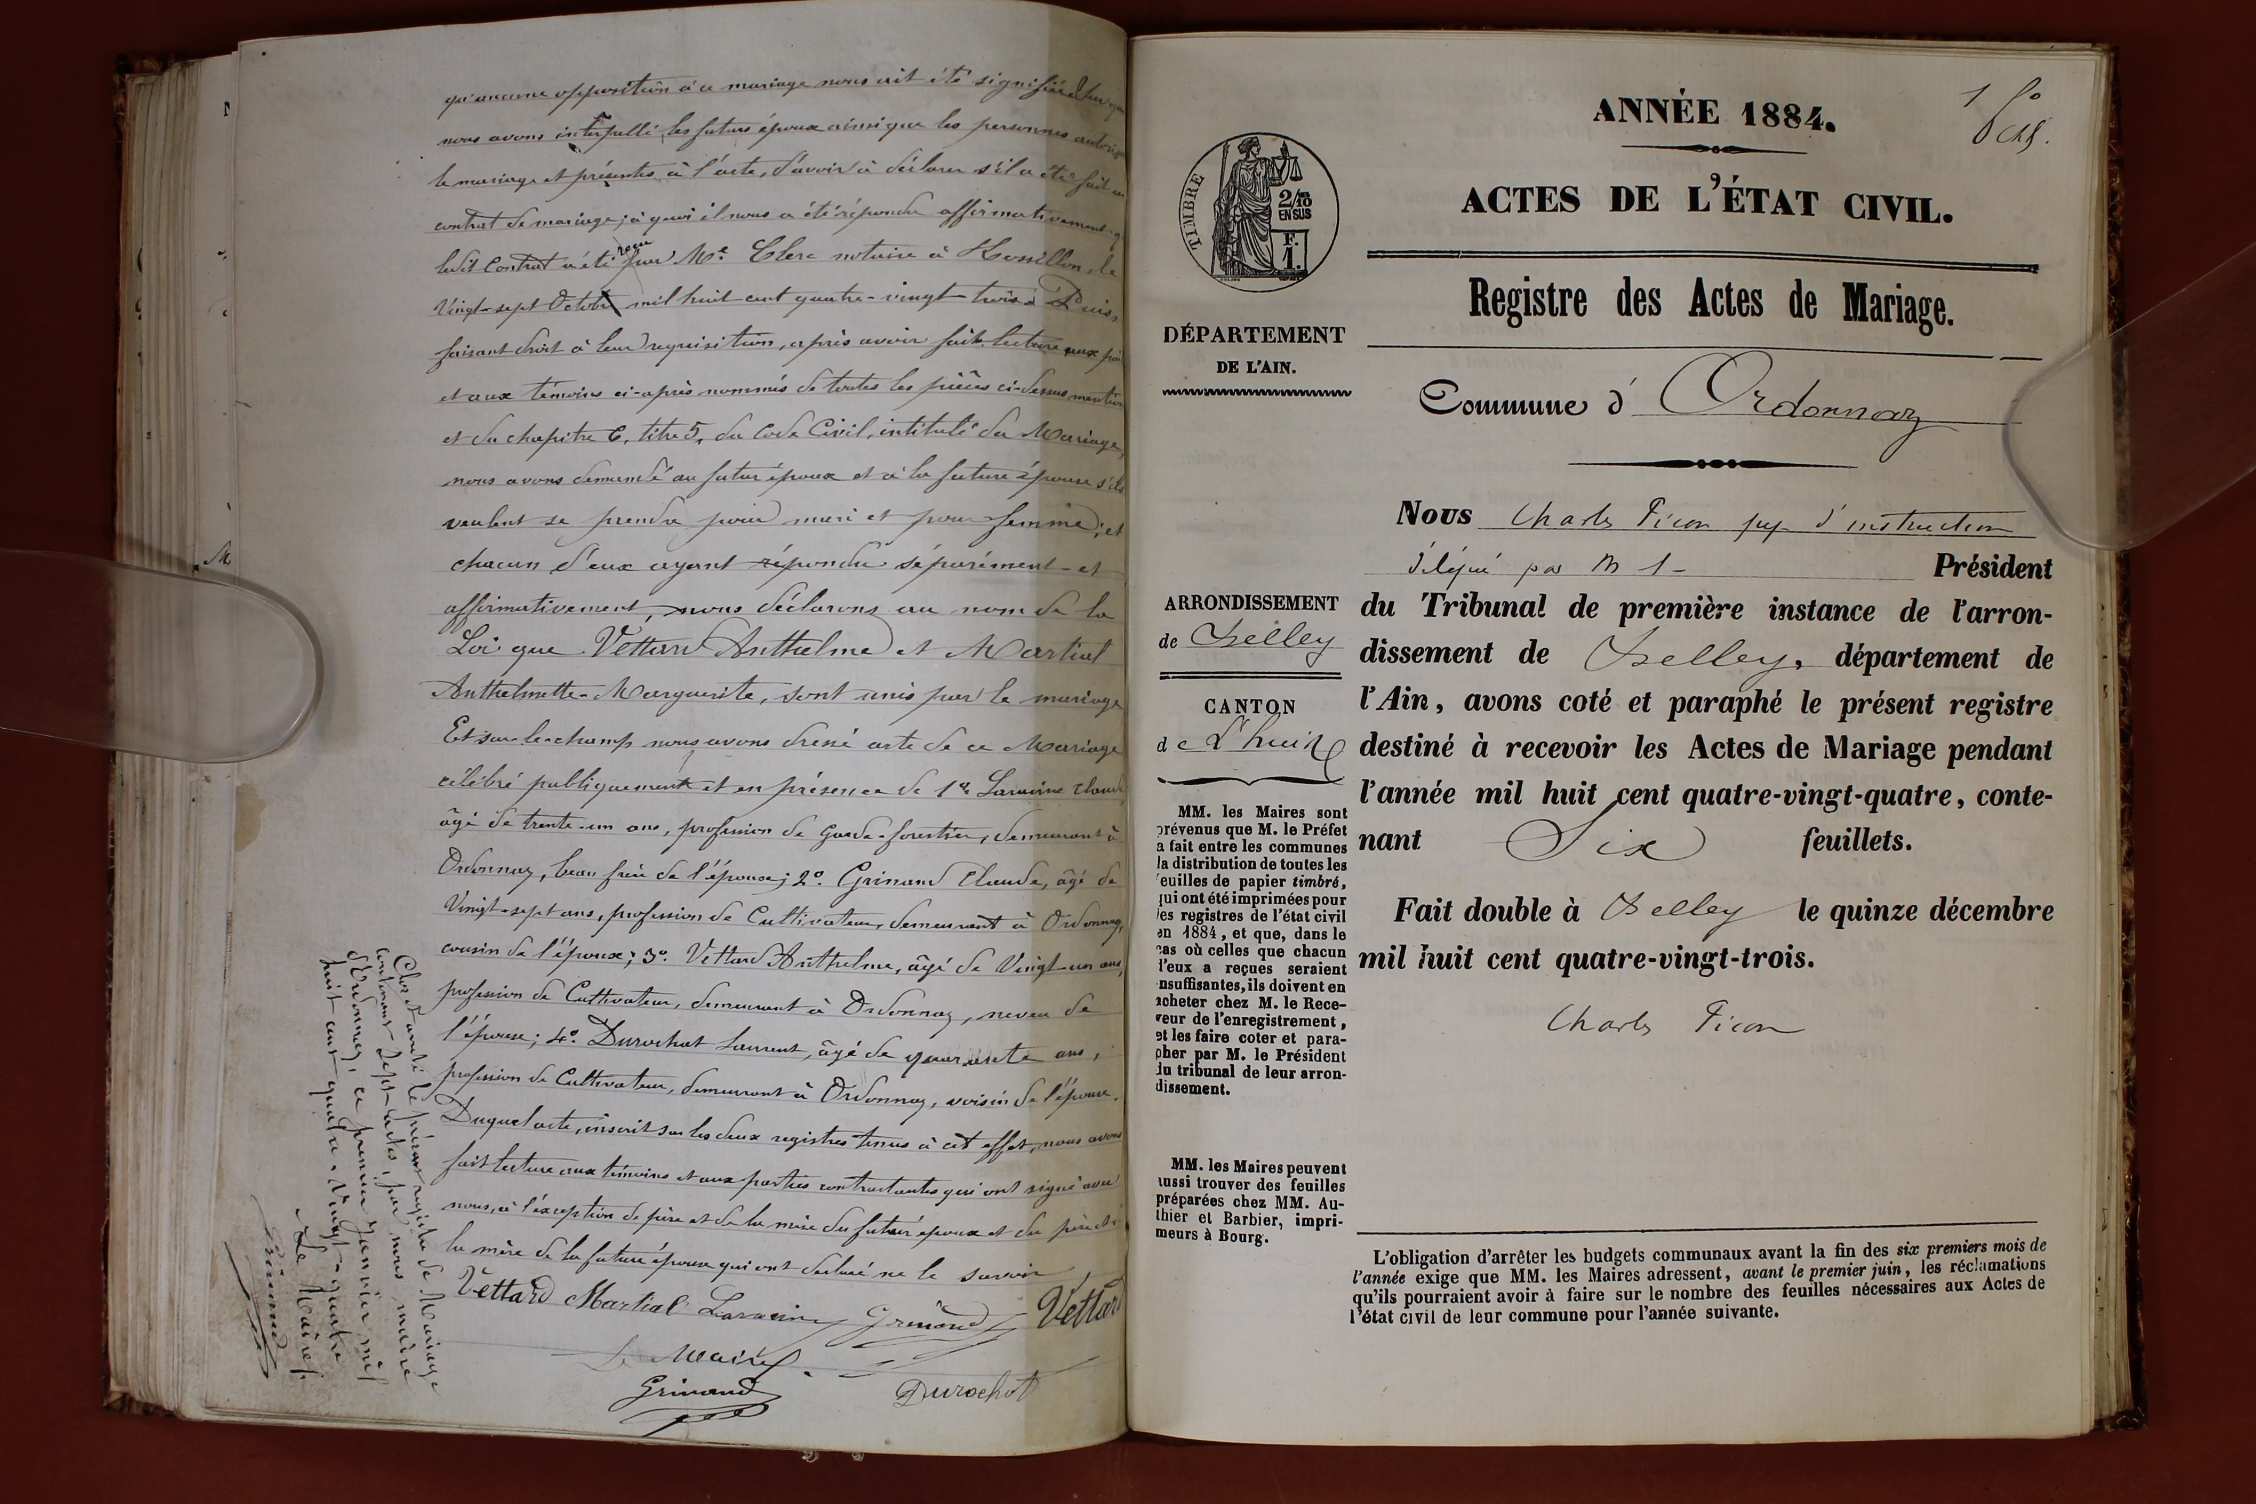 qu'aucune opposition à ce mariage nous ait été signifiée
nous avons interpellé les futurs époux ainsi que les personnes
le mariage et présentes à l'acte, d'avoir à déclarer s'il a été fait un
contrat de mariage; à quoi il nous a été répondu affirmativement
ledit Contrat a été reçu par Me. Clerc notaire à Rossillon, le
Vingt-sept Octobre mil huit cent quatre-vingt-trois. Puis,
faisant droit à leur requisition, après avoir fait lecture aux
et aux témoins ci-après nommés de toutes les pièces ci-dessus
et du chapitre 6, titre 5, du Code Civil, intitulé du Mariage,
nous avons demandé au futur époux et à la future épouse s'ils
veulent se prendre pour mari et pour femme; et
chacun d'eux ayant répondu séparément et
affirmativement, nous déclarons au nom de la
Loi que Vettard Anthelme et Martial
Anthelmette-Marguerite, sont unis par le mariage
Et sur-le-champ nous avons dressé acte de ce Mariage
célébré publiquement et en présence de 1° Claude
âgé de trente-un ans, profession de Garde-forestier, demeurant à
Ordonnaz, beau frère de l'épouse; 2°. Grinand Claude, âgé de
Vingt-sept ans, profession de Cultivateur, demeurant à Ordonnaz,
cousin de l'épouse; 3°. Vettard Anthelme, âgé de Vingt-un ans,
profession de Cultivateur, demeurant à Ordonnaz, neveu de
l'épouse; 4°. Durochat Laurent, âgé de quarante ans,
profession de Cultivateur, demeurant à Ordonnaz, voisin de l'épouse.
Duquel acte, inscrit sur les deux registres tenus à cet effet, nous avons
fait lecture aux témoins et aux parties contractantes qui ont signé avec
nous, à l'exception du père et de la mère du futur époux et du père et
la mère de la future épouse qui ont déclaré ne le savoir
Vettard Martial Grinand Vettard
Le Maire
Grinand Durochat
Clos et arrêté le présent registre de Mariage
contenant sept actes, par nous maire
d'Ordonnaz, ce premier Janvier mil
huit cent quatre-vingt-quatre
Le Maire
Grinand
1 f°
ANNÉE 1884.
ACTES DE L'ÉTAT CIVIL.
Registre des Actes de Mariage.
Commune d'Ordonnaz
TIMBRE
2/10
EN SUS
F.
1.
DÉPARTEMENT
DE L'AIN.
ARRONDISSEMENT
de Belley
CANTON
de L'huis
MM. les Maires sont
prévenus que M. le Préfet
a fait entre les communes
la distribution de toutes les
feuilles de papier timbré,
qui ont été imprimées pour
les registres de l'état civil
en 1884, et que, dans le
cas où celles que chacun
d'eux a reçues seraient
insuffisantes, ils doivent en
acheter chez M. le Rece-
veur de l'enregistrement,
et les faire coter et para-
pher par M. le Président
du tribunal de leur arron-
dissement.
MM. les Maires peuvent
aussi trouver des feuilles
préparées chez MM. Au-
thier et Barbier, impri-
meurs à Bourg.
Nous Charles Picon juge d'instruction
délégué par M le Président
du Tribunal de première instance de l'arron-
dissement de Belley, département de
l'Ain, avons coté et paraphé le présent registre
destiné à recevoir les Actes de Mariage pendant
l'année mil huit cent quatre-vingt-quatre, conte-
nant Six feuillets.
Fait double à Belley le quinze décembre
mil huit cent quatre-vingt-trois.
Charles Picon
L'obligation d'arrêter les budgets communaux avant la fin des six premiers mois de
l'année exige que MM. les Maires adressent, avant le premier juin, les réclamations
qu'ils pourraient avoir à faire sur le nombre des feuilles nécessaires aux Actes de
l'état civil de leur commune pour l'année suivante.